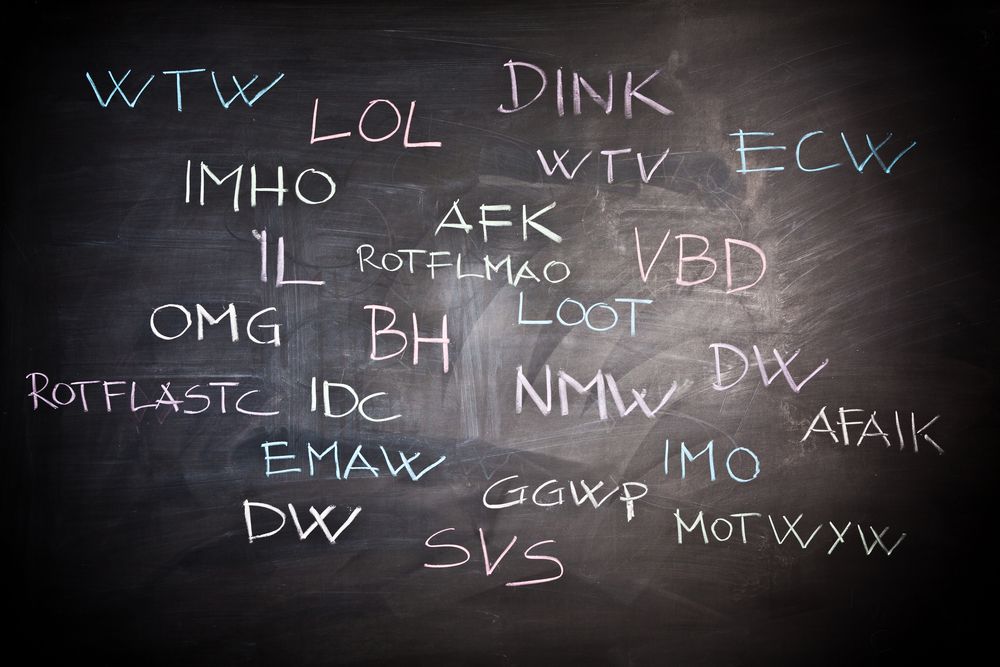 WTW
DINK
LOL
WTV
ECW
IMHO
AFK
IL
ROTFLMAO
VBD
OMG
BH
LOOT
ROTFLASTC
IDC
NMW
DW
AFAIK
EMAW
IMO
GGWP
DW
SVS
MOTWYW